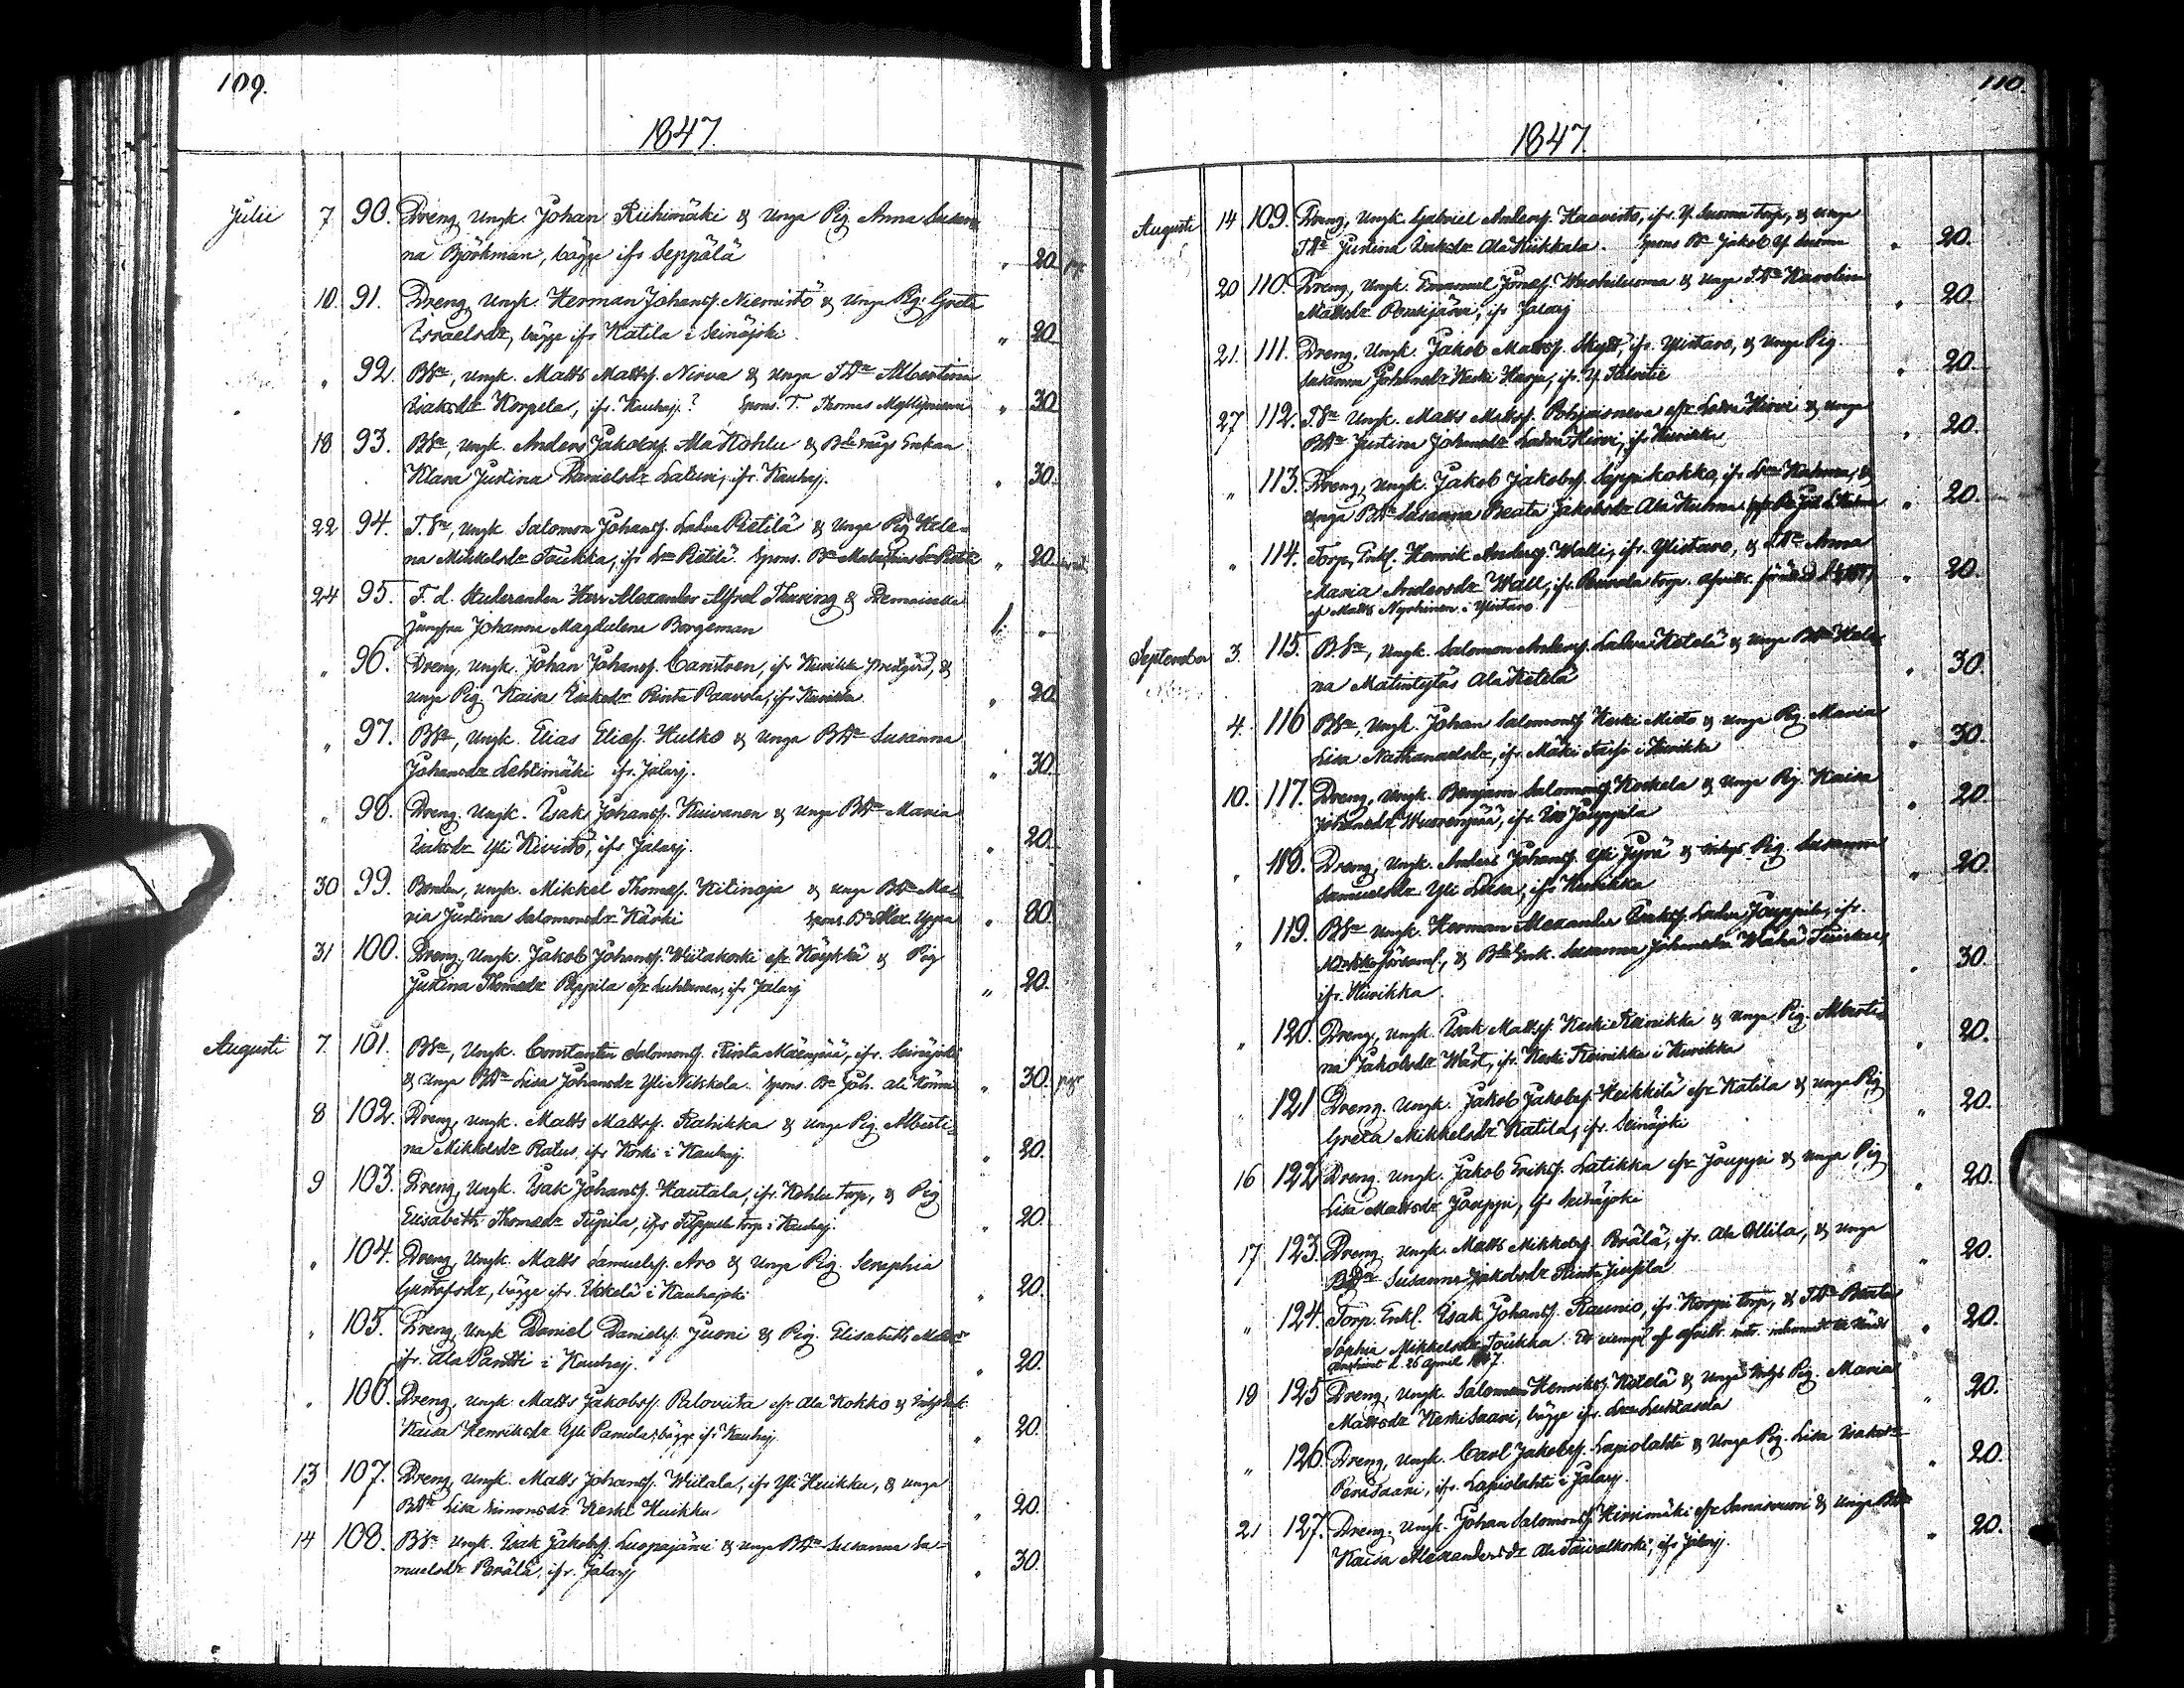 109.
1847.
Julii 7 90. Dreng, Ungk. Johan Riihimäki & Unga Pig. Anna Susan-
na Björkman, bägge ifr Seppälä 20
10. 91. Dreng, Ungk. Herman Johanss. Niemistö & Unga Pig. Greta
Israelsdr, bägge ifr Katila i Seinäjoki. " 20
" 92. BSn, Ungk. Matts Mattss. Nirva & Unga TDr Albertina
Isaksdr Korpela, ifr. Kauhaj.? Spons. T. Thomas Myllyniemi " 30
18 93. BSn, Ungk. Anders Jakobss. Ala Kohlu & Enkan
Klara Justina Danielsdr Laturi, ifr. Kauhaj. " 30
22 94. T.Sn, Ungk. Salomon Johanss. Ladva Pietilä & Unga Pig Hele-
na Mikkelsdr Toukka, ifr Lva Pietilä. Spons. Bn " 20
24 95. T. d. Studeranden Herr Alexander Alfred Thuring & Demoiselle
Jungfru Johanna Magdalena Borgeman 1 "
" 96. Dreng, Ungk. Johan Johanss. Canstren, ifr Kurikka prestgård, &
unga Pig. Kaisa Isaksdr Rinta Paavola, ifr Kurikka " 20
" 97. BSn, Ungk. Elias Eliass. Hulko & Unga BDr Susanna
Johansdr Lehtimäki ifr. Jalasj. " 30
" 98. Dreng. Ungk. Isak Johanss. Kuivanen & Unga BDr Maria
Isaksdr Yli Kivistö, ifr Jalasj. " 20
30 99. Bonden, Ungk. Mikkel Thomass. Kitinoja & Unga BDr Ma-
ria Justina Salomonsdr Kärki Spons. Bn Alex. Yppä " 30
31 100. Dreng, Ungk. Jakob Johanss. Wiitakoski efr Köykkä & Pig
Justina Thomasdr Peppila efr Luhtanen, ifr Jalasj " 20
Augusti 7. 101. BSn, Ungk. Constantin Salomonss. Rinta Mäenpää, ifr. Seinäjoki
& Unga BDr Lisa Johansdr Yli Nikkola. Spons. Bn Joh. Ala " 30
8 102. Dreng, Ungk. Matts Mattss. Rahikka & Unga Pig. Alberti-
na Mikkelsdr Ratus, ifr Koski i Kauhaj. " 20
9 103. Dreng, Ungk. Isak Johanss. Hautala, ifr. Kohlu torp, & Pig
Elisabeth Thomasdr Tupila, ifr Filppula torp i Kauhaj. " 20
" 104. Dreng, Ungk. Matts Samuelss. Aro & Unga Pig. Seraphia
Gustafsdr, bägge ifr. Ikkelä i Kauhajoki " 20.
" 105. Dreng, Ungk Daniel Danielss. Juoni & Pig. Elisabeth
ifr. Ala Pantti i Kauhaj. " 20.
" 106. Dreng, Ungk. Matts Jakobss. Paloviita efr Ala Kokko &
Kaisa Henriksdr Yli Panula, bägge ifr Kauhaj " 20.
13 107. Dreng, Ungk. Matts Johanss. Wiitala, ifr Yli Huikku, & unga
BDr Lisa Simonsdr Keski Huikku " 20.
14 108. BSn Ungk. Isak Jakobss. Luopajärvi & Unga BDr Susanna Sa-
muelsdr Perälä, ifr. Jalasj " 30.
110.
1847.
Augusti 14 109. Dreng, Ungk. Gabriel Anderss. Haavisto, ifr. Y. Luoma torp, & unga
TDr Justina Isaksdr Ala Kiikkala. Spons Bn Jakob Y. Luoma " 20.
20 110. Dreng, Ungk. Emanuel Jonass. & Unga TDr Karolina
Mattsdr Pentijärvi, ifr Jalasj " 20
21. 111. Dreng, Ungk. Jakob Mattss. Skytt, ifr. Ylistaro, & Unga Pig.
Susanna Johansdr Keski Harja, ifr. Y. " 20
27 112. T.Sn Ungk. Matts Mattss. Pohjoisneva efr Ladva Hirvi & Unga
BDr Justina Johansdr Ladva Hirvi, ifr Kurikka " 20.
" 113. Dreng, Ungk. Jakob Jakobss. Seppikokko, ifr. Lva Kuhna, &
Unga BDr Susanna Beata Jakobsdr Ala Kuhna " 20.
" 114. Torp. Enkl. Henrik Anderss. Walli, ifr. Ylistaro, & TDr Anna
Maria Andersdr Wall, ifr. torp.
af Matts Nyrhinen i Ylistaro. " 20.
September 3. 115. BSn, Ungk. Salomon Anderss. Ladva Ketelä & Unga BDr Hele-
na Matintytär Ala Ketelä " 30.
4. 116 BSn, Ungk. Johan Salomonss. Keski Mieto & Unga Pig. Maria
Lisa Nathanaelsdr, ifr. Mäki i Kurikka " 30.
10. 117. Dreng, Ungk. Benjam. Salomonss. Koskela & Unga Pig. Kaisa
Johansdr Wuorenpää, ifr. Iso Jouppila " 20
" 118. Dreng, Ungk. Anders Johanss. Yli Jyrä & Pig. Susanna
Samuelsdr Yli Luka, ifr Kurikka " 20.
" 119. BSn Ungk. Herman Alexander Isakss. Ladva Jouppila, ifr.
& Enk. Susanna Johansdr Waha Tuisku,
ifr. Kurikka. " 30.
" 120. Dreng, Ungk. Isak Mattss. Keski Reinikka & Unga Pig. Alberti-
na Jakobsdr Wäst, ifr. Keski Reinikka i Kurikka " 20.
121 Dreng. Ungk. Jakob Jakobss. Heikkilä efr Katila & Unga Pig
Greta Mikkelsdr Katila, ifr. Seinäjoki " 20.
16 122 Dreng. Ungk. Jakob Erikss. Latikka efr Jouppi & Unga Pig
Lisa Mattsdr Jouppi, ifr Seinäjoki " 20.
17 123. Dreng. Ungk. Matts Mikkelss. Perälä, ifr. Ala Ollila, & Unga
BDr Susanna Jakobsdr Rinta Jussila " 20.
" 124. Torp. Enkl. Isak Johanss. Raunio, ifr. Korpi torp, & TDr Beata
Sophia Mikkelsdr Toukka.
d. 26 April 1847. " 20.
18 125 Dreng, Ungk. Salomon Henrikss. Ketelä & Unga Pig. Maria
Mattsdr Keski Saari, bägge ifr. Lva Luhtasela " 20.
" 126. Dreng, Ungk. Carl Jakobss. Lapiolahti & Unga Pig. Lisa Isaksdr
Perisaari, ifr. Lapiolahti i Jalasj. " 20.
21 127. Dreng. Ungk. Johan Salomonss. Hirvimäki efr & Unga BDr
Kaisa Alexandersdr Ala Taivalkoski, ifr Jalasj. " 20.